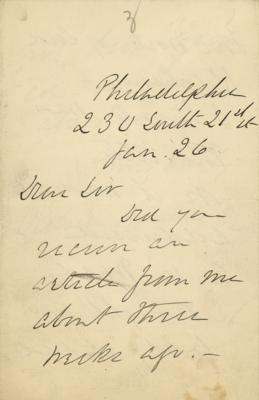 3
Philadelphia
230 South 21st st
Jan. 26
Dear Sir
Did you
receive an
article from me
about three
weeks ago. -